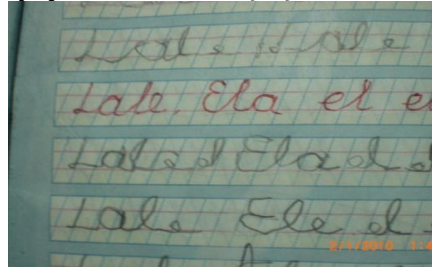 Lale Lale
Lale. Ela el e
Lale l Ela l l
Lale Ele el
2/1/2010 1:4